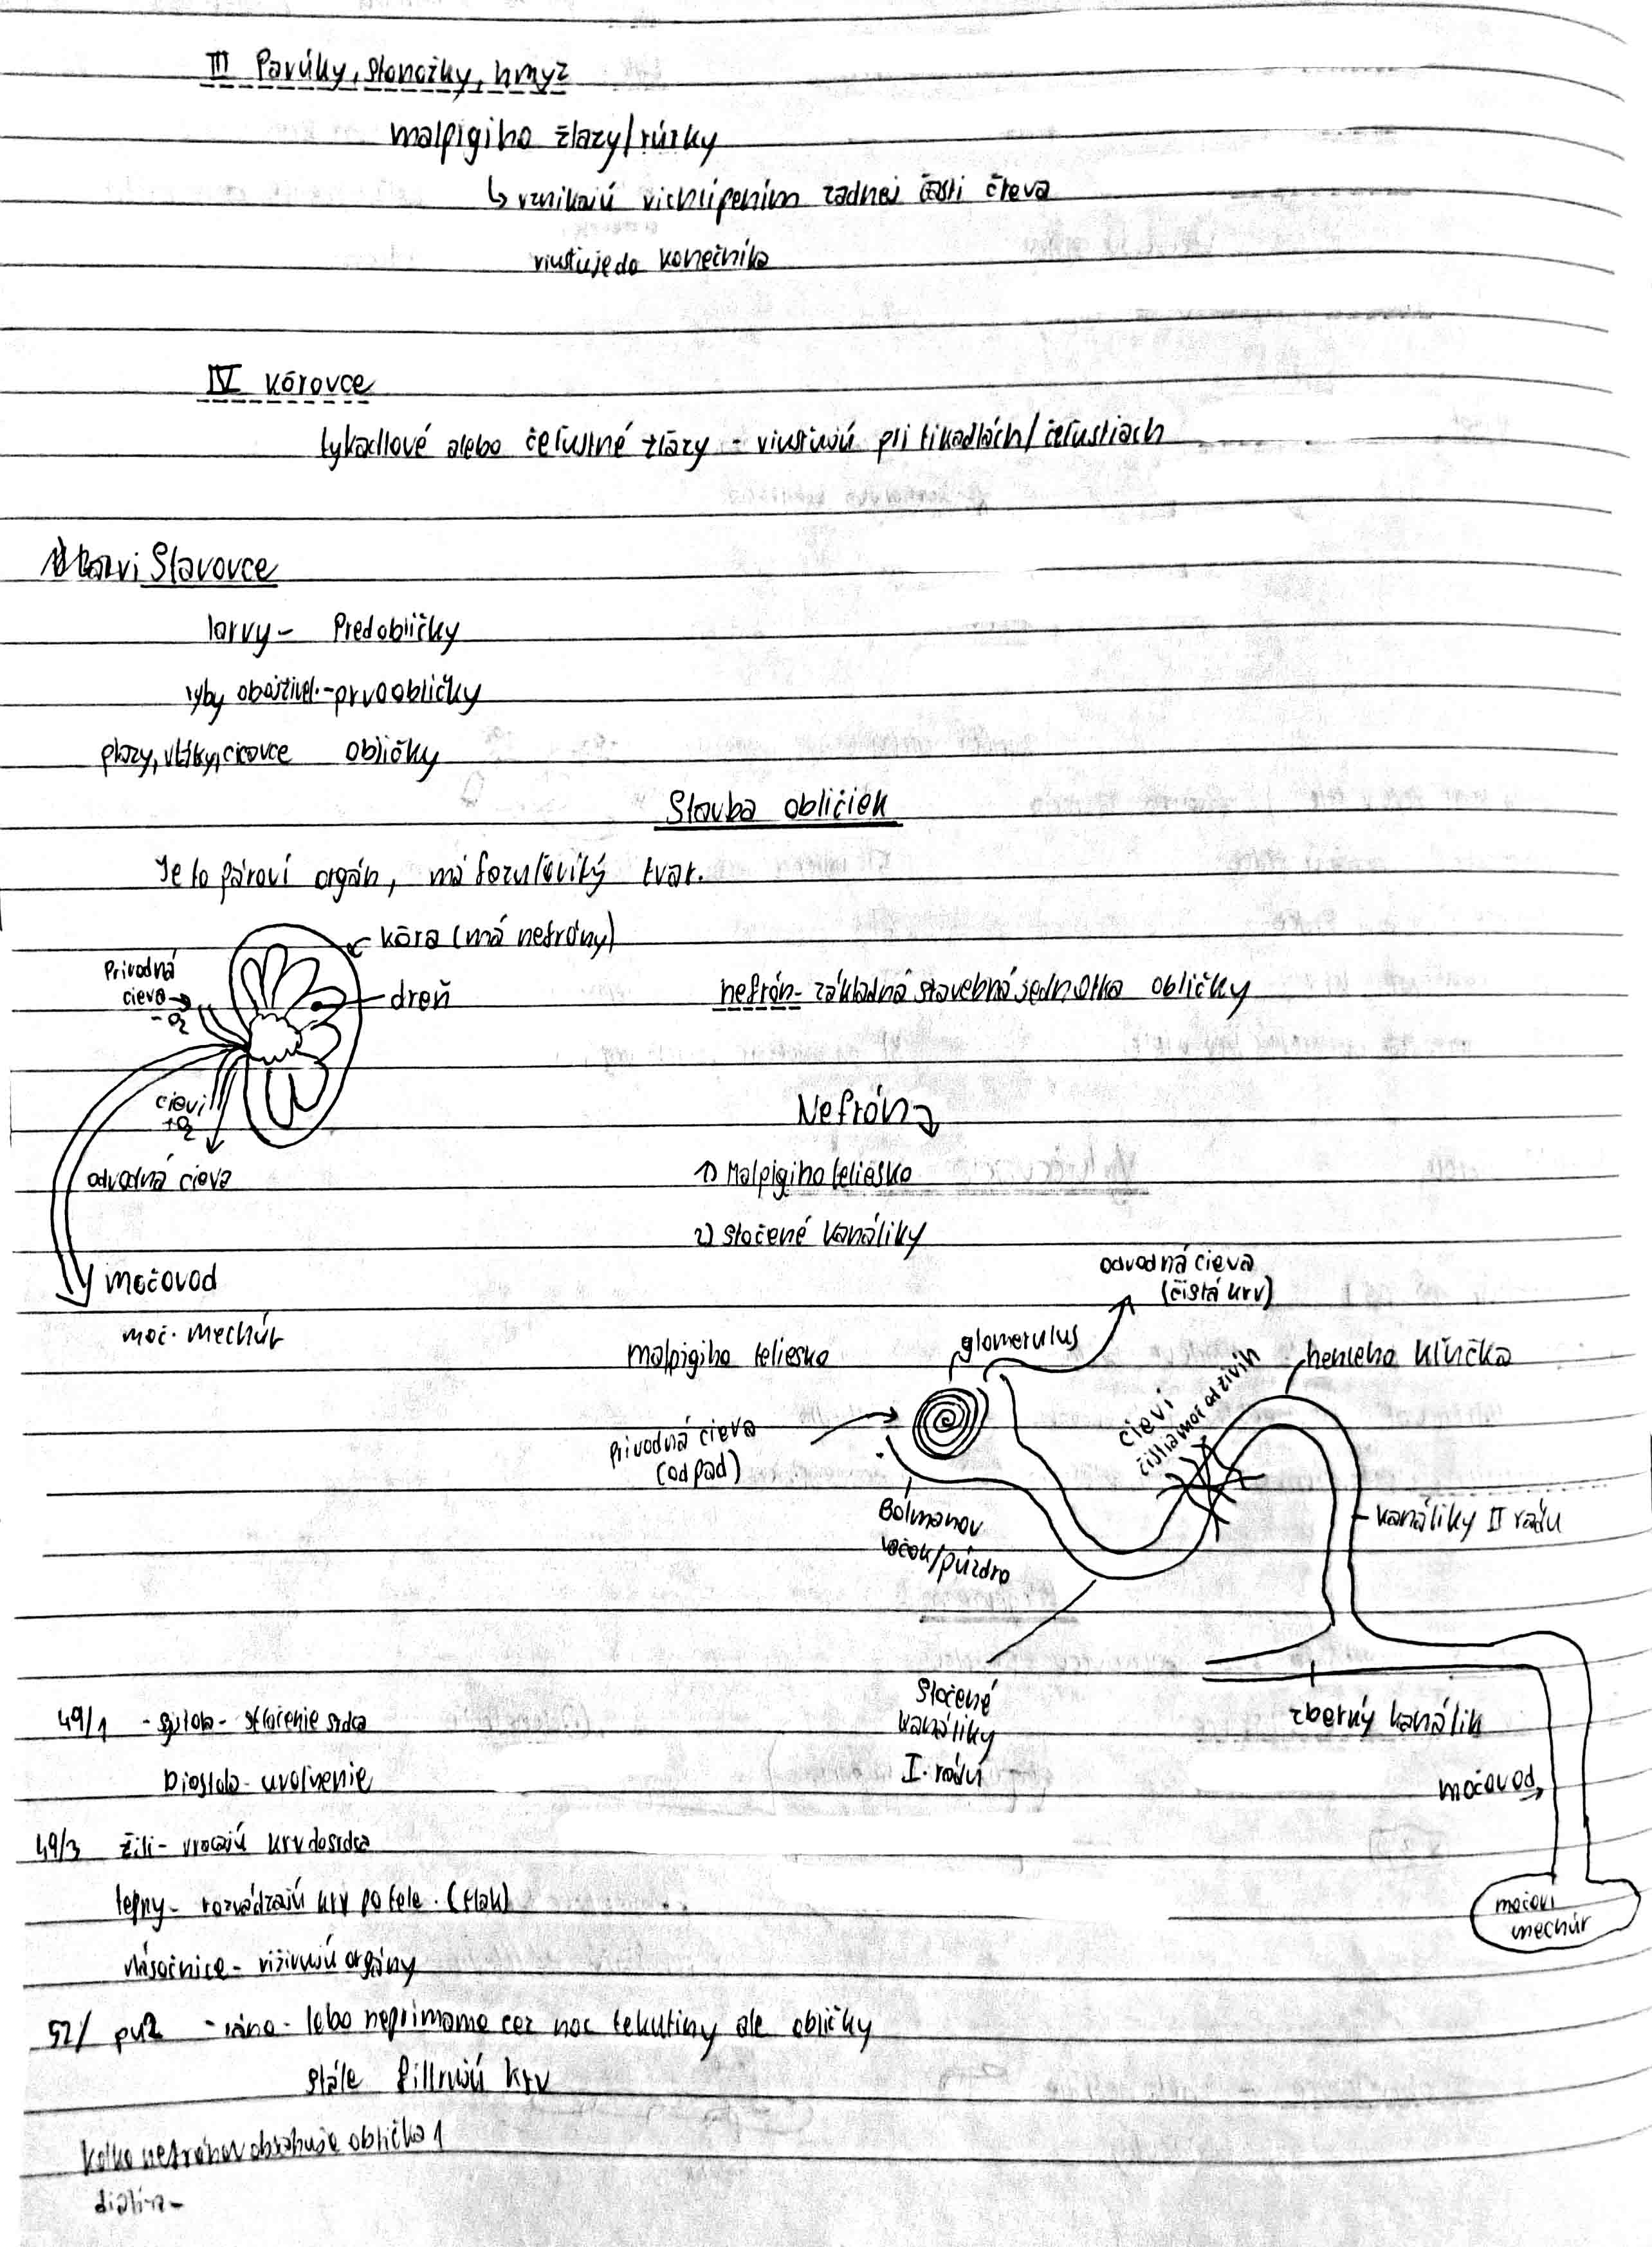 III Pavúky, stonožky, hmyz
malpigiho žlazy/rúrky
↳ vznikajú vichlípením zadnej časti čreva
viusťuje do konečníka
IV kôrovce
tykadlové alebo čeľustné žlázy - viusťujú pri tikadlách/čeľustiach
Stavovce
larvy - Predobličky
ryby obojživel. - prvoobličky
plazy, vtáky, cicavce obličky
Stavba obličiek
Je to pároví orgán, má fazuľovitý tvar.
kôra (má nefróny)
Prívodná
cieva
- O2
dreň
nefrón - základná stavebná jednotka obličky
cievi
+O2
odvodná cieva
močovod
moč. mechúr
Nefrón
1) Malpigiho teliesko
2) stočené kanáliky
odvodná cieva
(čistá krv)
malpigiho teliesko
glomerulus
henleho kľučka
prívodná cieva
(odpad)
cievi
čistia moč od živín
Bolmanov
vačok/púzdro
kanáliky II rádu
Stočené
kanáliky
I. rádu
zberný kanálik
močovod
močoví
mechúr
49/1 - systola - stlačenie srdca
Diastola - uvoľnenie
49/3 žili - vracajú krv do srdca
tepny - rozvádzajú krv po tele. (tlak)
vlásočnice - viživujú orgány
52/ - ráno - lebo neprímame cez noc tekutiny ale obličky
stále filtrujú krv
Koľko nefrónov obsahuje oblička 1